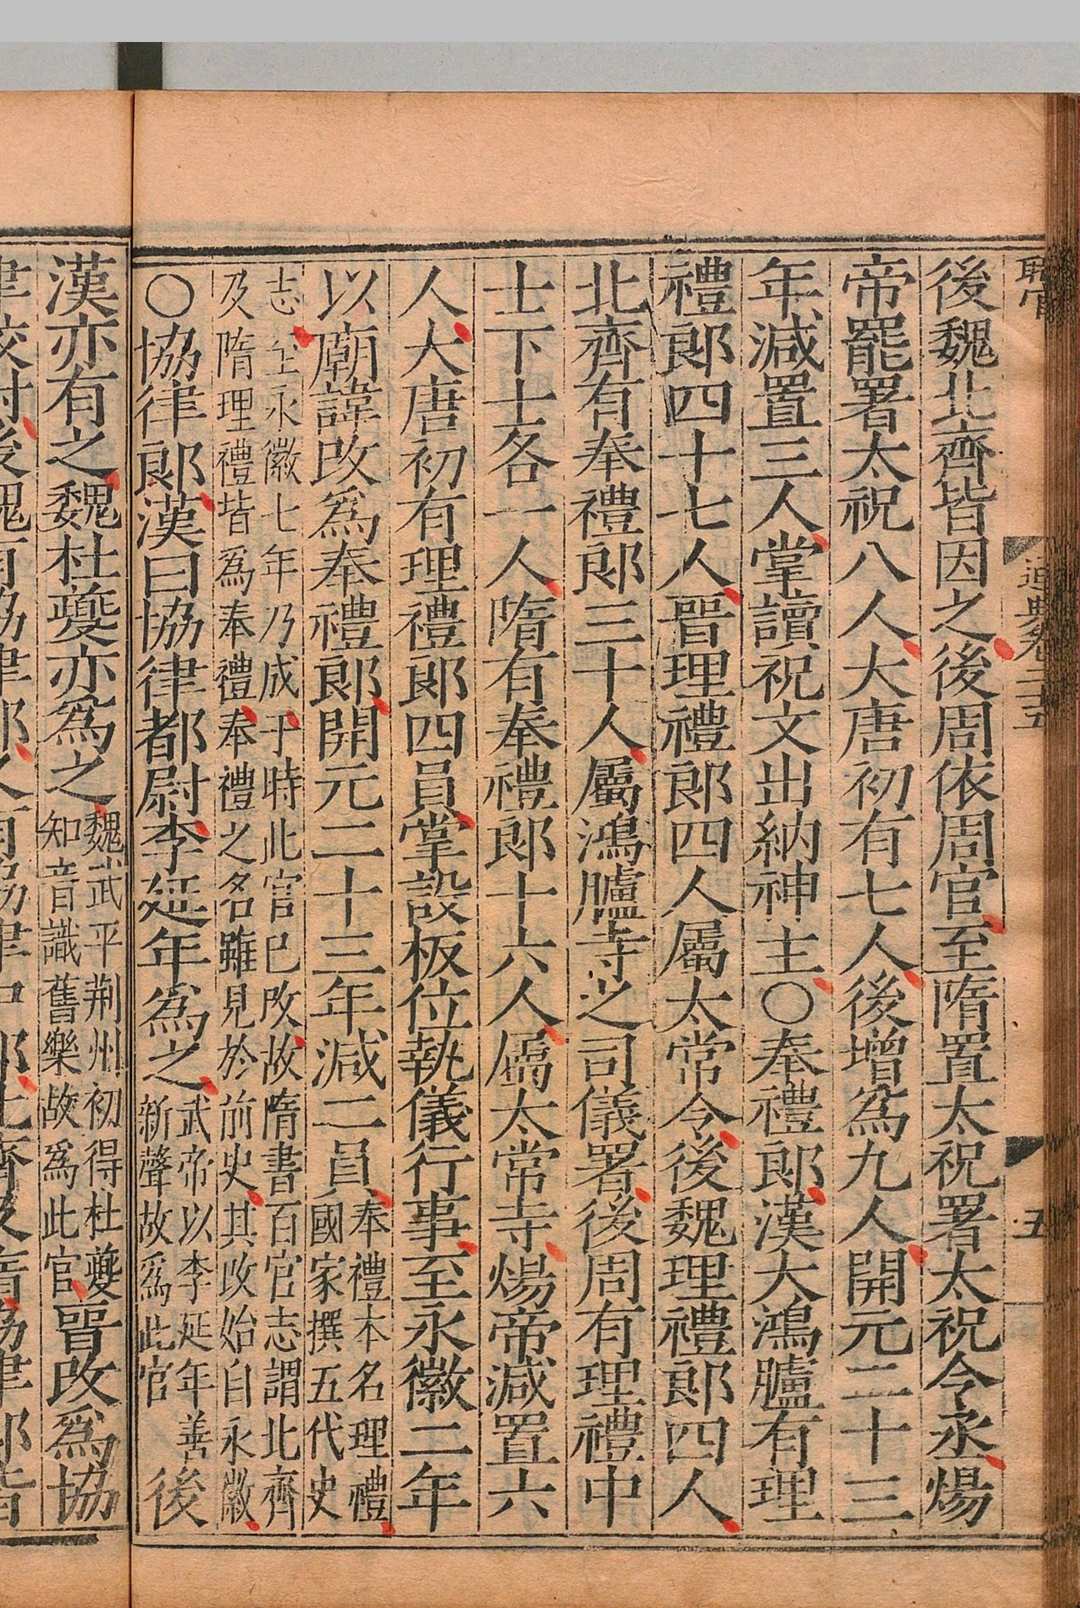 職官
通典卷二十五
五
後魏北齊皆因之後周依周官至隋置太祝署太祝令丞煬
帝罷署太祝八人大唐初有七人後增爲九人開元二十三
年減置三人掌讀祝文出納神主〇奉禮郎漢大鴻臚有理
禮郎四十七人晉理禮郎四人屬太常令後魏理禮郎四人
北齊有奉禮郎三十人屬鴻臚寺之司儀署後周有理禮中
士下士各一人隋有奉禮郎十六人屬太常寺煬帝減置六
人大唐初有理禮郎四員掌設板位執儀行事至永徽二年
以廟諱改爲奉禮郎開元二十三年減二員奉禮本名理禮國家撰五代史
志至永徽七年乃成于時此官已改故隋書百官志謂北齊
及隋理禮皆爲奉禮奉禮之名雖見於前史其改始自永徽
〇協律郎漢曰協律都尉李延年爲之武帝以李延年善新聲故爲此官後
漢亦有之魏杜夔亦爲之魏武平荆州初得杜夔知音識舊樂故爲此官晉改爲協